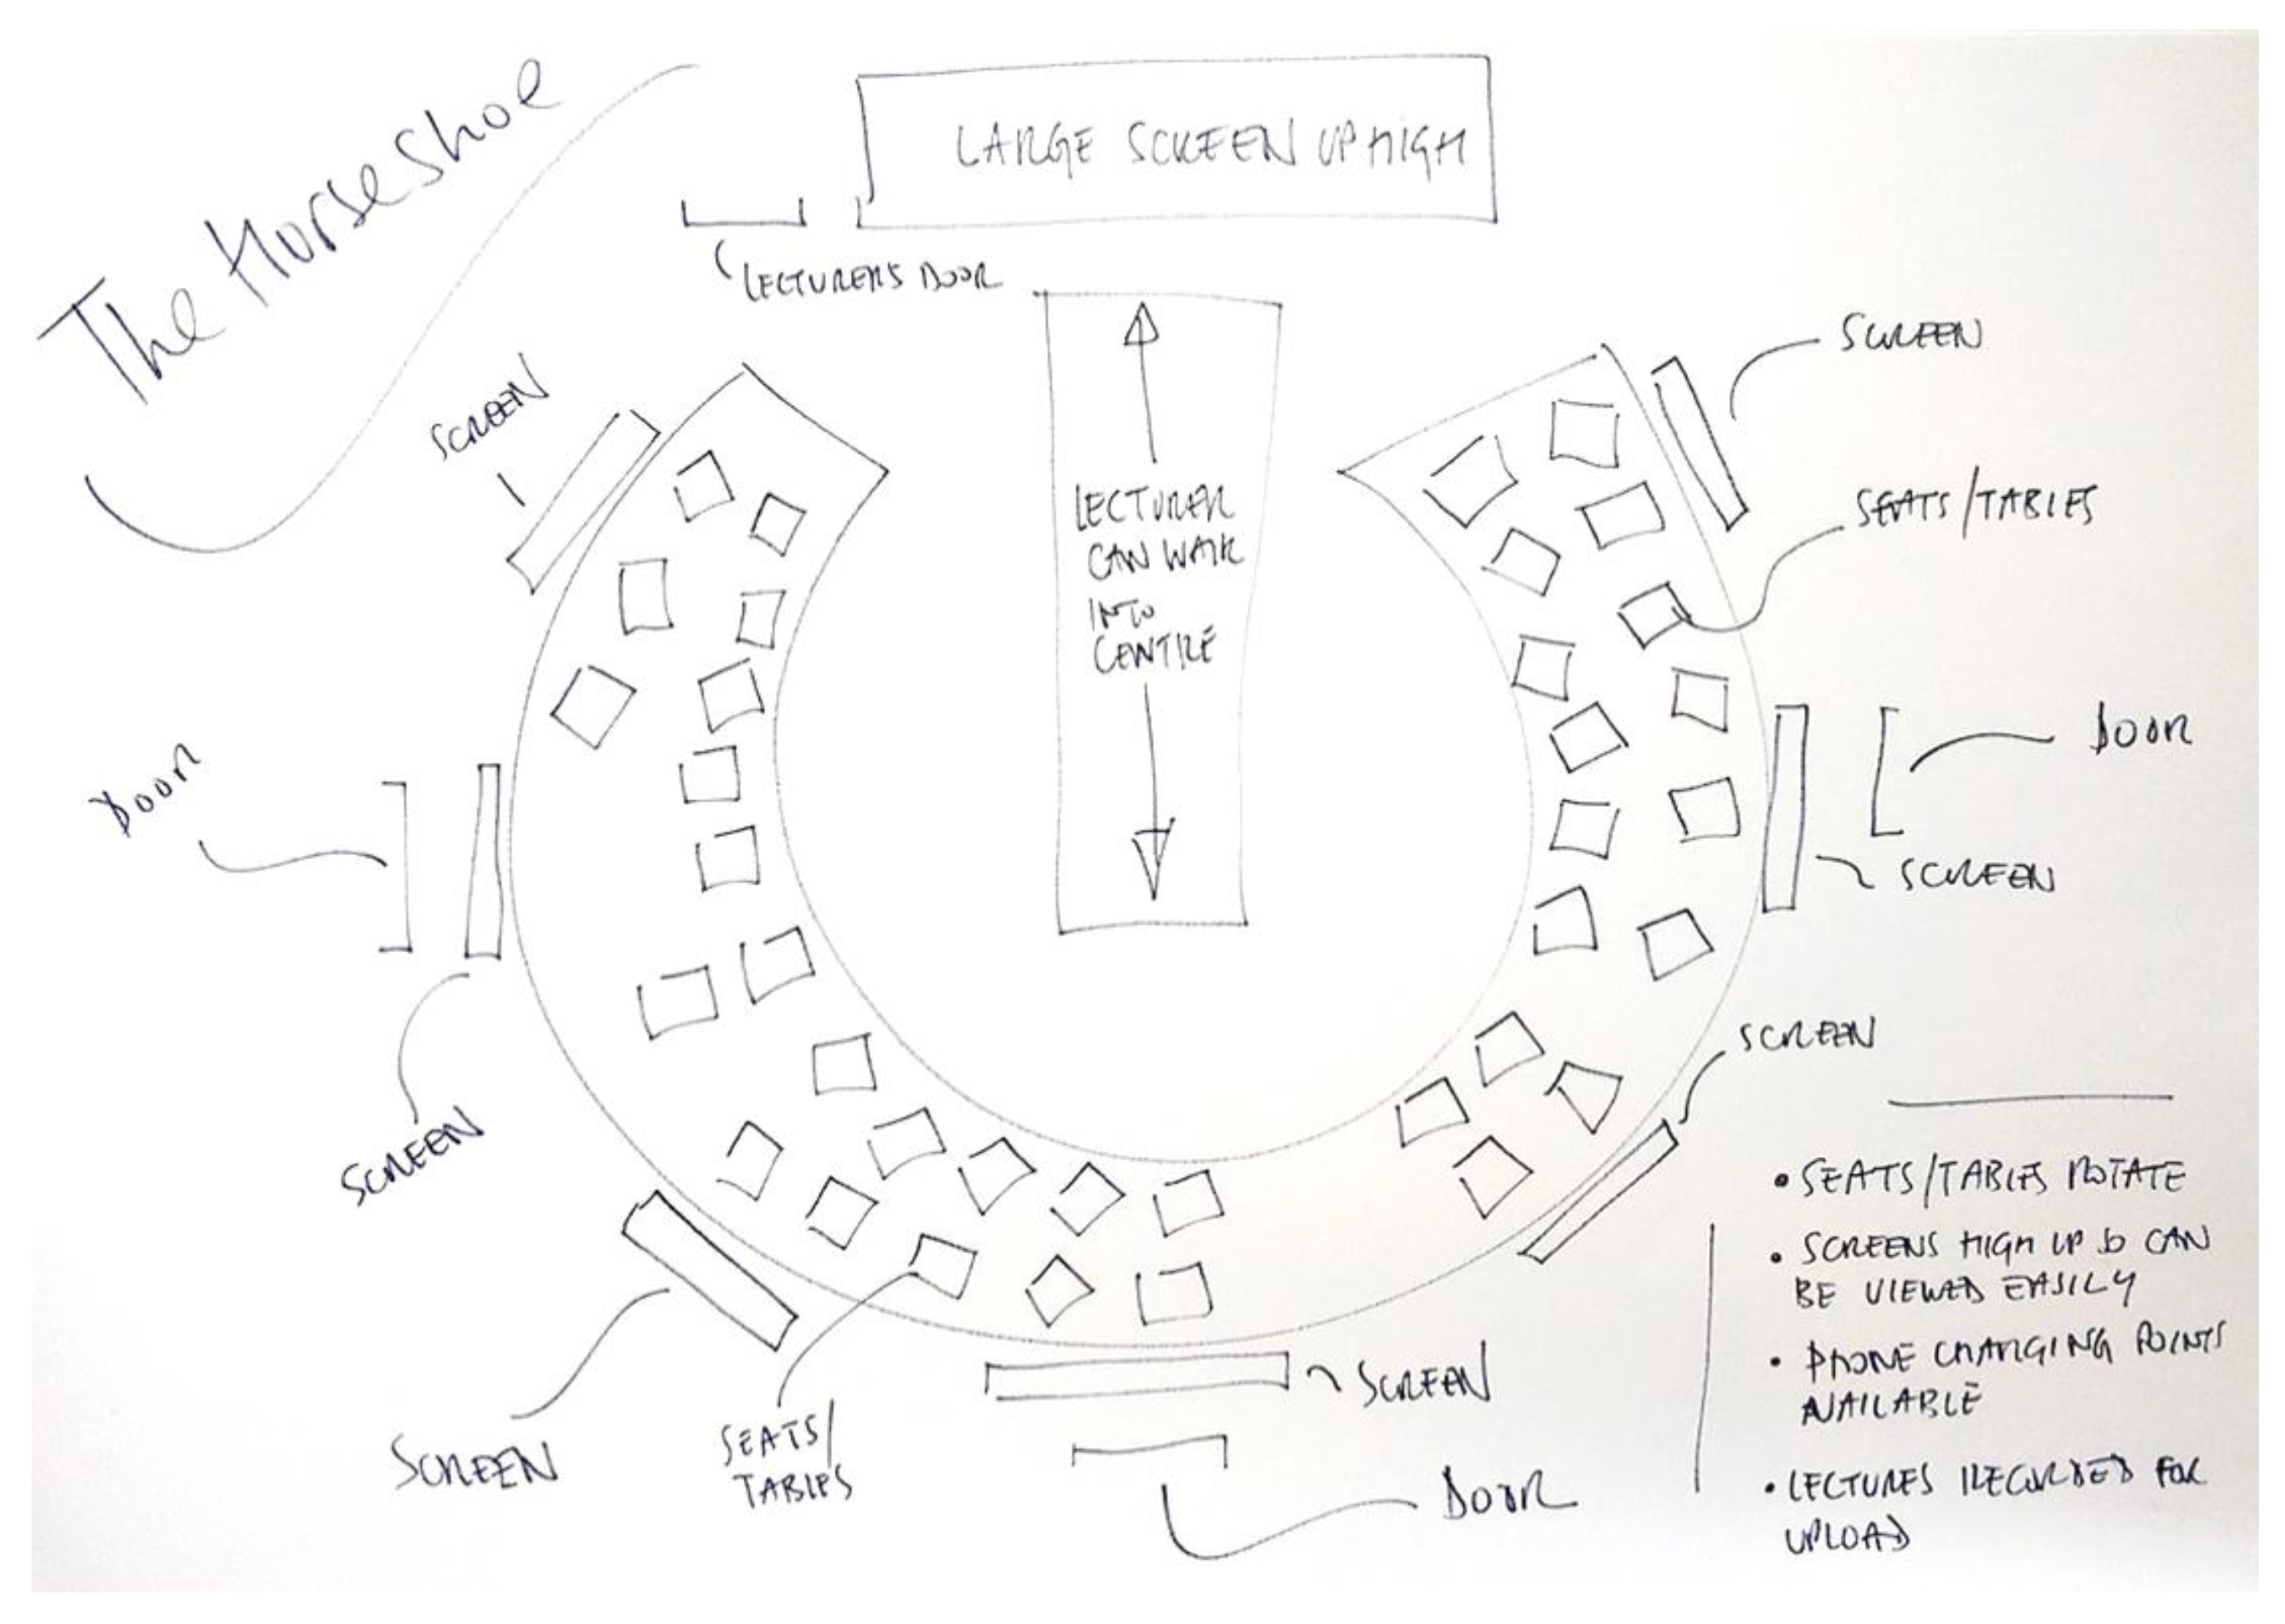 The Horseshoe
LARGE SCREEN UP HIGH
LECTURERS DOOR
SCREEN
SCREEN
LECTURER
CAN WALK
INTO
CENTRE
SEATS/TABLES
DOOR
DOOR
SCREEN
SCREEN
SCREEN
SCREEN
SEATS/
TABLES
SCREEN
DOOR
• SEATS/TABLES ROTATE
• SCREENS HIGH UP SO CAN
BE VIEWED EASILY
• PHONE CHARGING POINTS
AVAILABLE
• LECTURES RECORDED FOR
UPLOAD